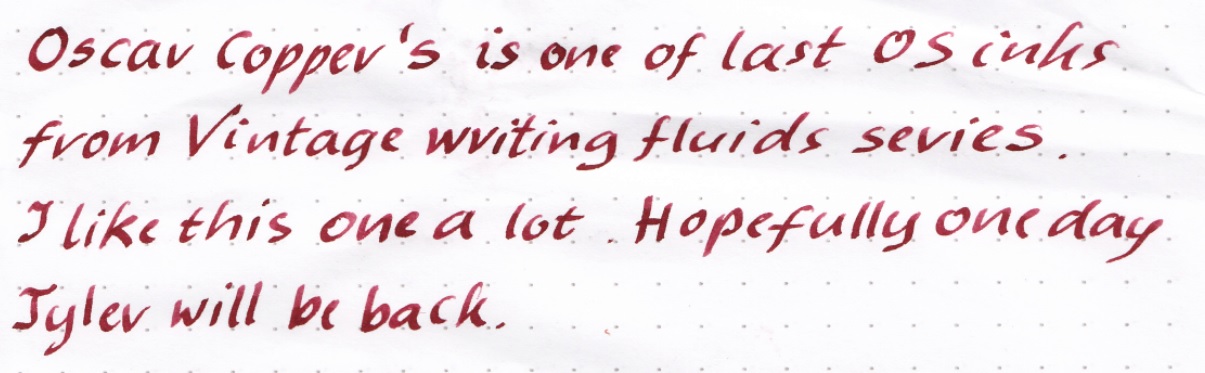 Oscar Copper's is one of last OS inks
from Vintage writing fluids series.
I like this one a lot. Hopefully one day
Tyler will be back.